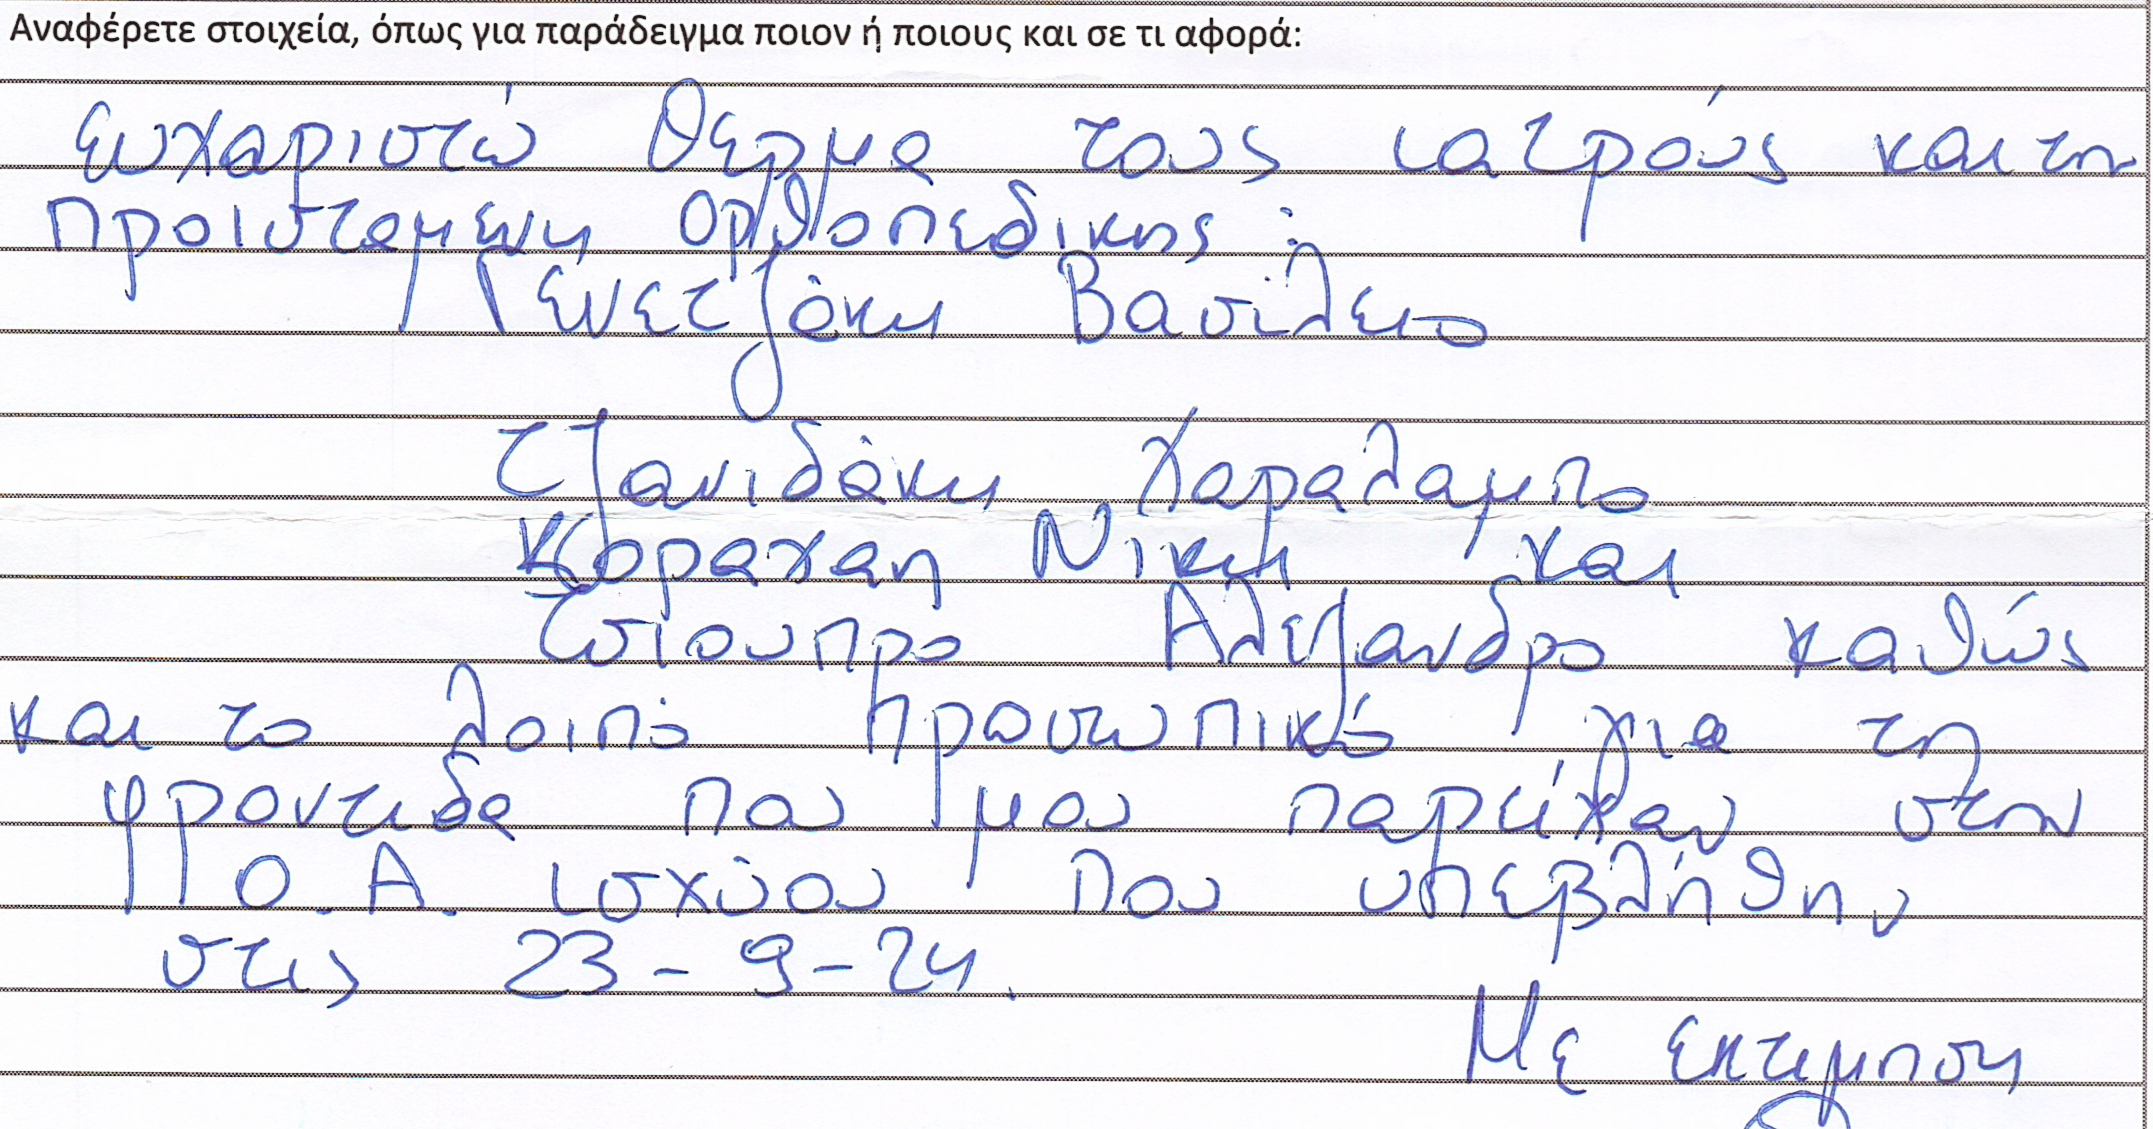 Αναφέρετε στοιχεία, όπως για παράδειγμα ποιον ή ποιους και σε τι αφορά:
Ευχαριστώ θερμα τους ιατρούς και τη
προισταμενη Ορθοπεδικης :
Γενετζάκη Βασίλειο
Τζανιδάκη Χαραλαμπο
Καραχαη Νικη και
Τσιουπρο Αλεξανδρο καθώς
και το λοιπό προσωπικό για τη
φροντιδα που μου παρείχαν στην
Ο.Α. ισχύου που υπεβλήθην
στις 23-9-24.
Με εκτιμηση